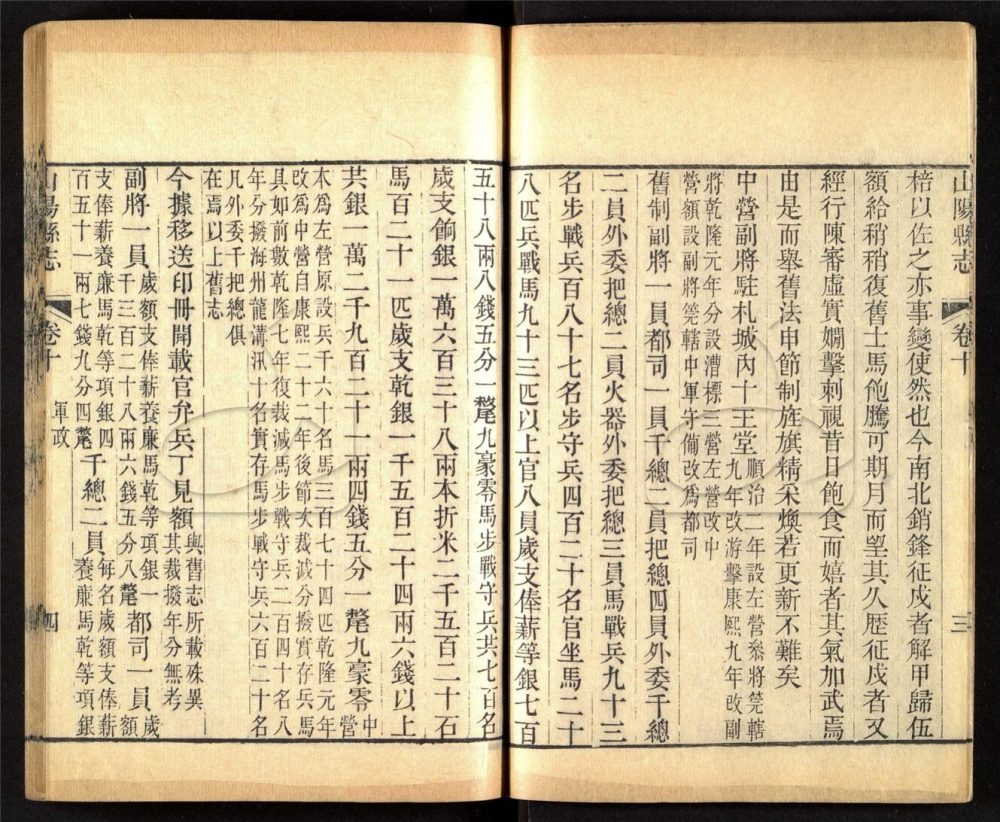 山陽縣志
卷十
三
梏以佐之亦事變使然也今南北銷鋒征戍者解甲歸伍
額給稍稍復舊士馬飽騰可期月而望其久歴征戍者又
經行陳審虛實嫺擊刺視昔日飽食而嬉者其氣加武焉
由是而舉舊法申節制旌旗精采煥若更新不難矣
中營副將駐札城內十王堂
順治二年設左營叅將筦轄
九年改游擊康熙九年改副
將乾隆元年分設漕標三營左營改中
營額設副將筦轄中軍守僃改爲都司
舊制副將一員都司一員千總二員把總四員外委千總
二員外委把總二員火器外委把總三員馬戰兵九十三
名步戰兵百八十七名步守兵四百二十名官坐馬二十
八匹兵戰馬九十三匹以上官八員歲支俸薪等銀七百
五十八兩八錢五分一釐九豪零馬步戰守兵共七百名
歲支餉銀一萬六百三十八兩本折米二千五百二十石
馬百二十一匹歲支乾銀一千五百二十四兩六錢以上
共銀一萬二千九百二十一兩四錢五分一釐九豪零
中
營
本爲左營原設兵千六十名馬三百七十四匹乾隆元年
改爲中營自康熙二十二年後節次裁減分撥實存兵馬
具如前數乾隆七年復裁減馬步戰守兵二百四十名八
年分撥海州龍溝汛十名實存馬步戰守兵六百二十名
凡外委千把總俱
在焉以上舊志
今據移送印冊開載官弁兵丁見額
與舊志所載殊異
其裁撥年分無考
副將一員
歲額支俸薪養廉馬乾等項銀一
千三百二十八兩六錢五分八釐
都司一員
歲
額
支俸薪養廉馬乾等項銀四
百五十一兩七錢九分四釐
千總二員
每名歲額支俸薪
養廉馬乾等項銀
山陽縣志
卷十
軍政
四